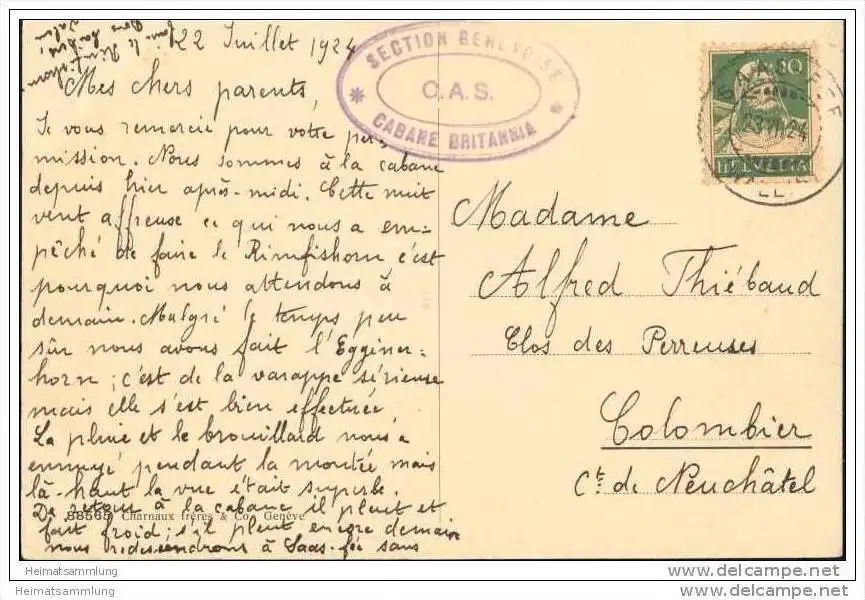 22 Juillet 1924
Mes chers parents,
Je vous remercie pour votre per-
mission. Nous sommes à la cabane
depuis hier après-midi. Cette nuit
vent affreuse ce qui nous a em-
pêché de faire le Rimfishorn c'est
pourquoi nous attendons à
demain. Malgré le temps peu
sûr nous avons fait l'Eggéner-
horn ; c'est de la varappe sérieuse
mais elle s'est bien effectuée
La pluie et le brouillard nous a
ennuyé pendant la montée mais
là-haut la vue était superbe.
De retour à la cabane il pleut et
fait froid ; s'il pleut encore demain
nous redescendrons à Saas-fée sans
faire le Rimfishorn.
88565 Charnaux frères & Co. Genève
SECTION GENEVOISE
C.A.S.
CABANE BRITANNIA
10
HELVETIA
SAAS-FEE
23.VII.24
Madame
Alfred Thiébaud
Clos des Perreuses
Colombier
Ct. de Neuchâtel
Heimatsammlung
Heimatsammlung
http://www.delcampe.net
http://www.delcampe.net